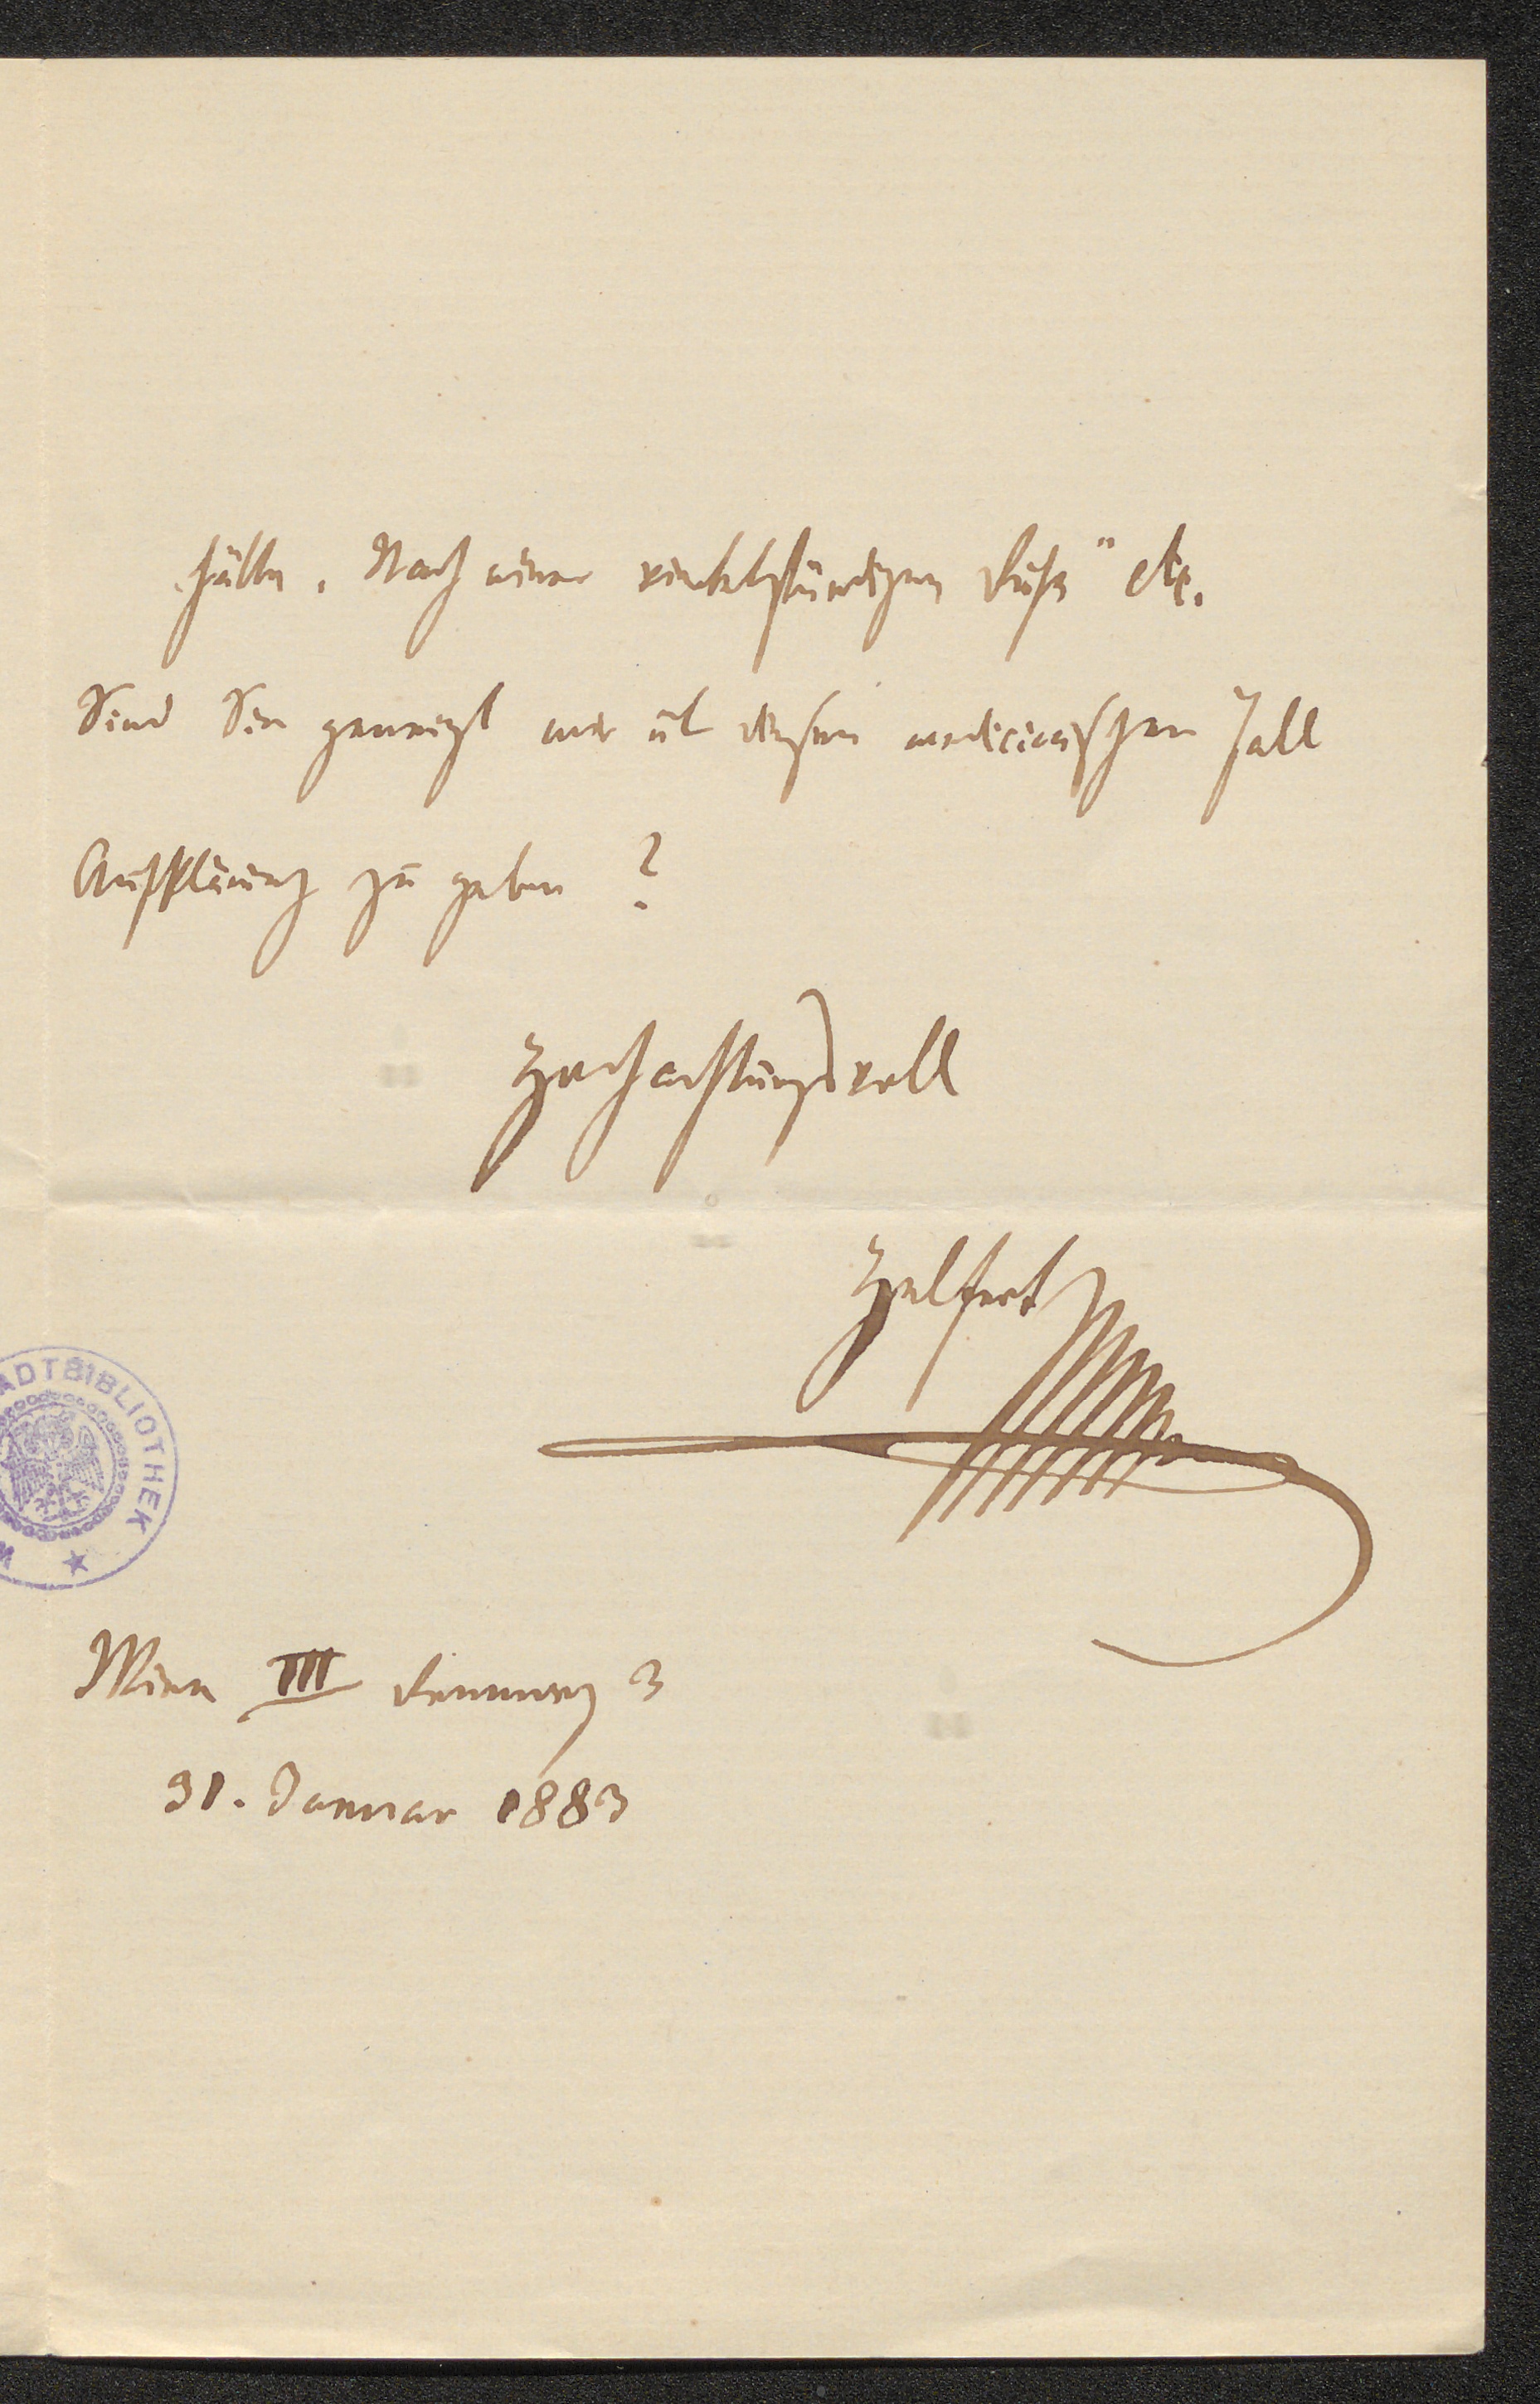 hätte. Nach einer viertelstündigen Ruhe" etc.
Sind Sie geneigt mir üb diesen medicinischen Fall
Aufklärung zu geben?
Hochachtungsvoll
Helfert
ADTBIBLIOTHEK
Wien III Rennweg 3
31. Januar 1883